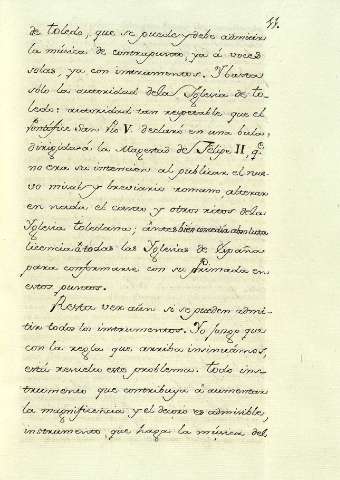 11.
de toledo, que se puede y debe admitir
la música de contrapunto, ya á voces
solas, ya con instrumentos. Y basta
sólo la autoridad de la Iglesia de to-
ledo: autoridad tan respetable que el
Pontífice San Pio V. declaró en una bula,
dirigida á la Magestad de Felipe II, qe.
no era su intencion al publicar el nue-
vo misal y breviario romano, alterar
en nada el canto y otros ritos de la
Iglesia toledana; ántes bien concedia absoluta
licencia á todas las Iglesias de España
para conformarse con su Primada en
estos puntos.
Resta ver aún si se pueden admi-
tir todos los instrumentos. Yo juzgo que
con la regla que arriba insinuámos,
está resuelto este problema. todo ins-
trumento que contribuya á aumentar
la magnificencia y el decoro es admisible,
instrumento que haga la música del